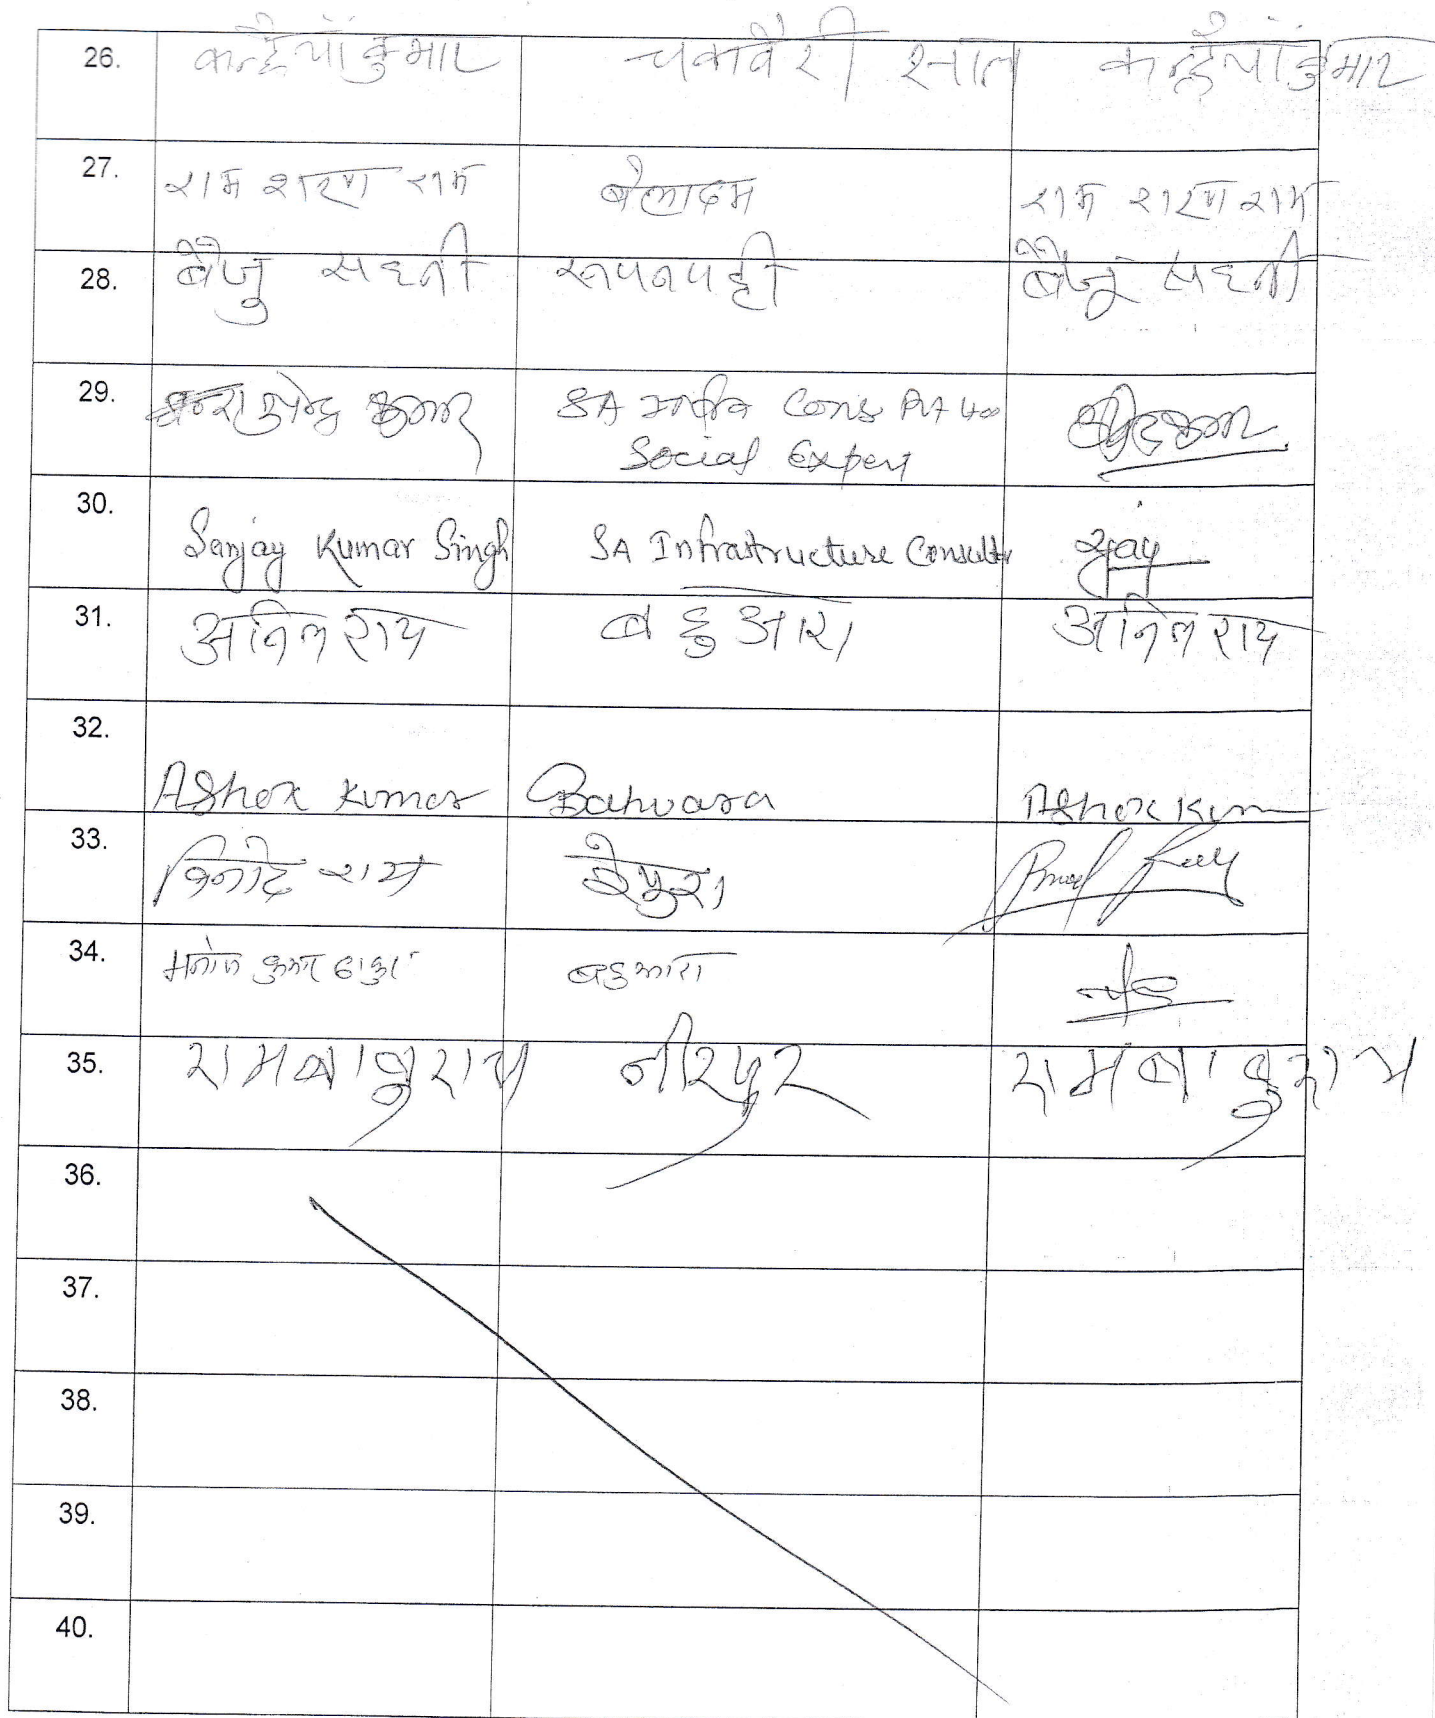 26. कन्हैयाँ कुमार चकवैरी कन्हैयाँ कुमार
27. राम शरण राम बेलादम राम शरण राम
28. बैजु सहनी रूपनपट्टी बैजू सहनी
29. कुमार SA Cons Pvt
Social Expert
30. Sanjay Kumar Singh SA Infrastructure Consult
31. अनिल राय बहुआरा अनिल राय
32. Ashok Kumar Bahuara Ashok Kum
33. विनोद राय
34. मनोज कुमार ठाकुर बहुआरा
35. रामबाबुराय नीरपुर रामबाबुराय
36.
37.
38.
39.
40.